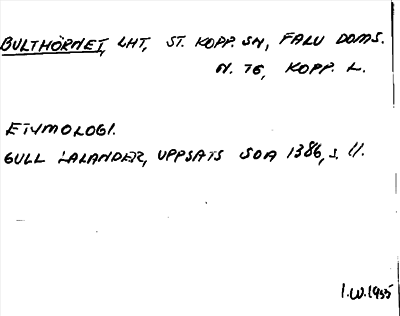 BULTHÖRNET, LHT, ST. KOPP. SN, FALU DOMS.
N. 76, KOPP. L.
ETYMOLOGI.
GULL LALANDER, UPPSATS SOA 1386, S. 11.
I.W.1955